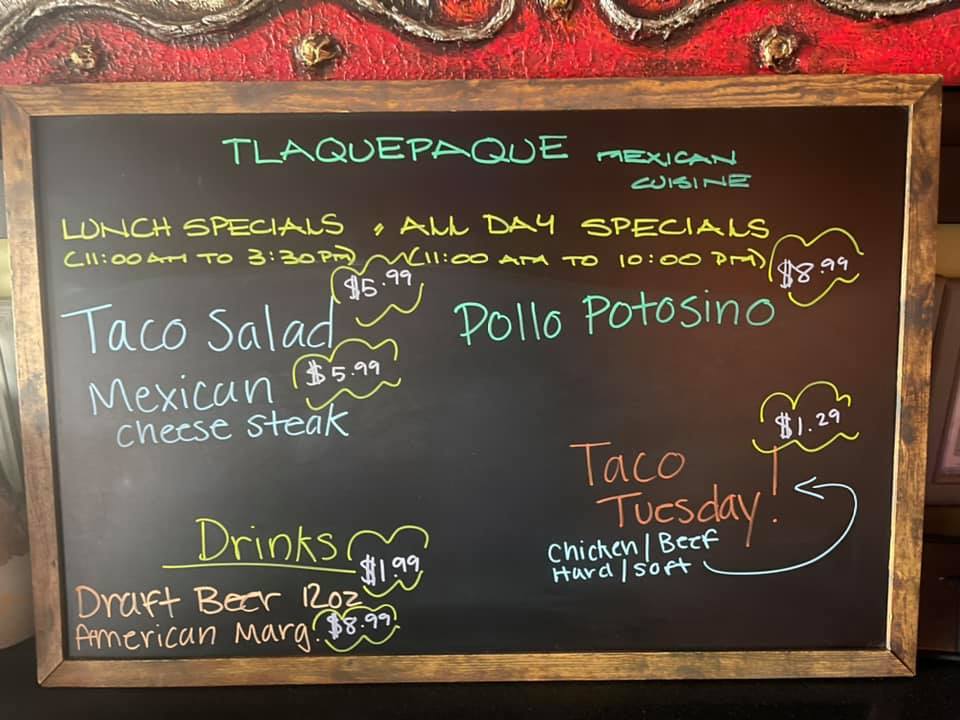 TLAQUEPAQUE MEXICAN
CUISINE
LUNCH SPECIALS , ALL DAY SPECIALS
(11:00 AM TO 3:30 PM) (11:00 AM TO 10:00 PM)
$5.99
$8.99
Taco Salad
Pollo Potosino
$5.99
Mexican
cheese steak
$1.29
Taco
Tuesday!
Chicken/Beef
Hard/soft
Drinks
$1.99
Draft Beer 12oz
American Marg. $8.99